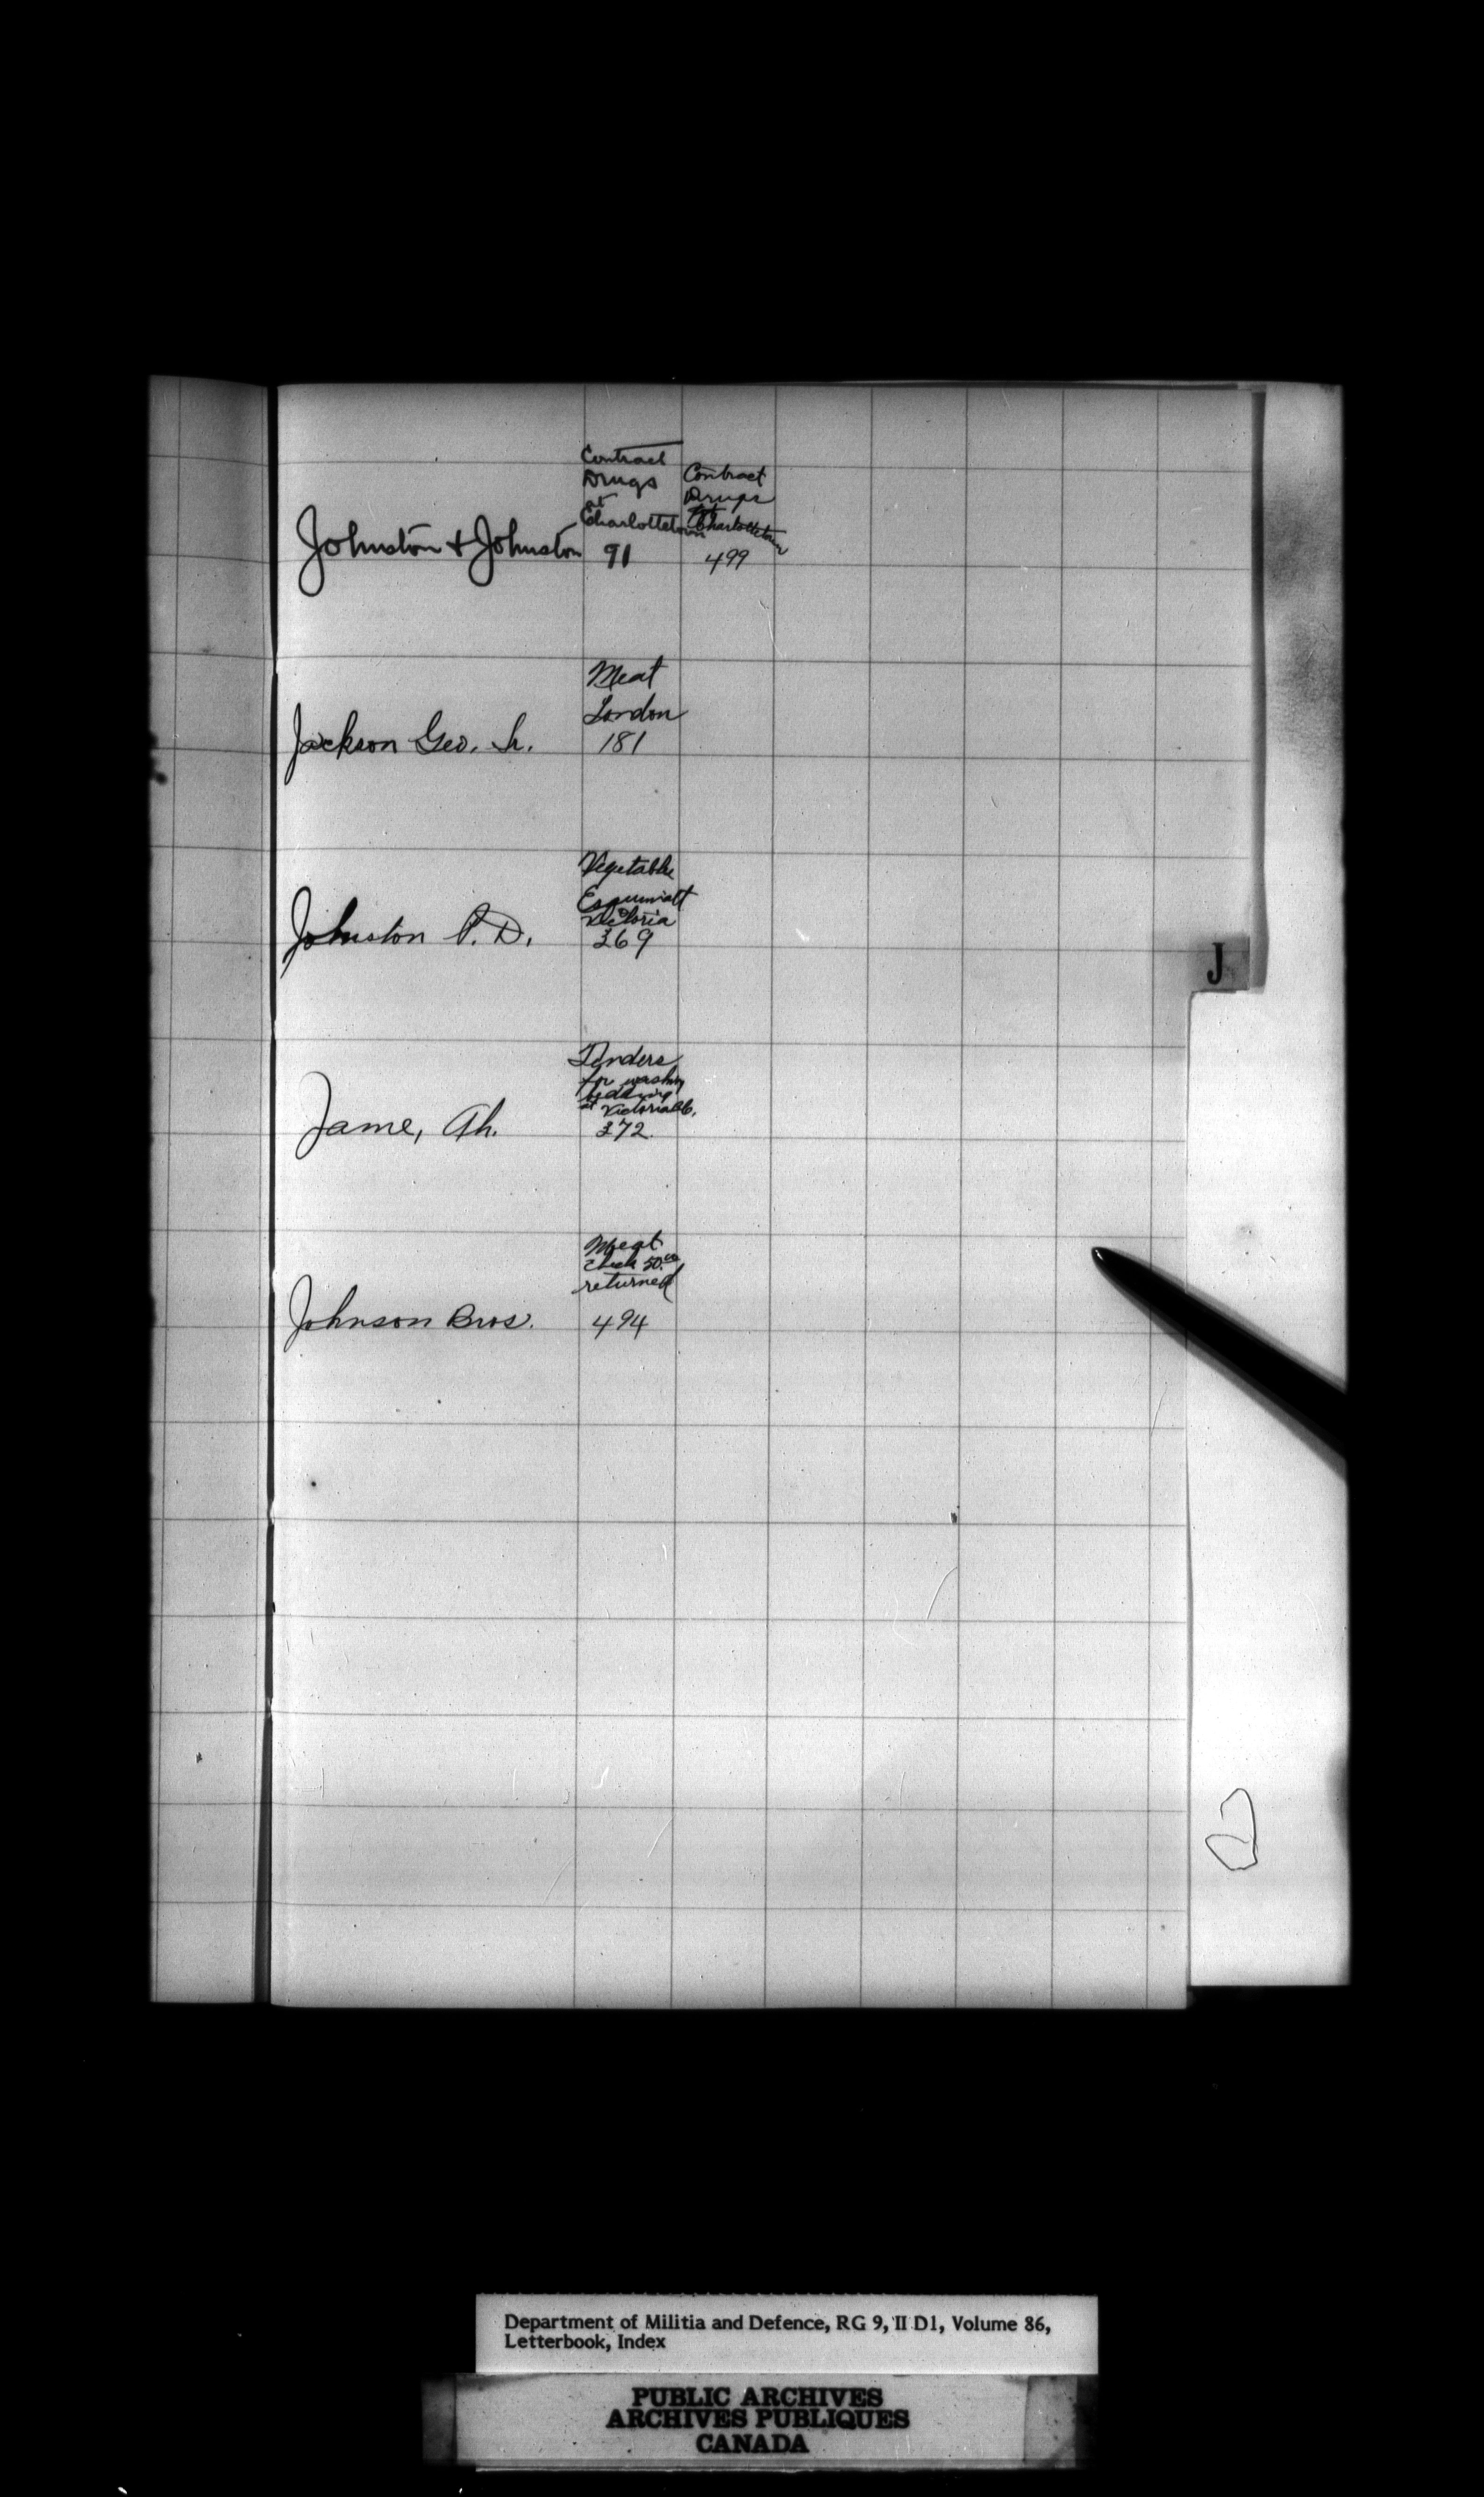 Contract
Drugs
at
Charlottetown
Contract
Drugs
at
Charlottetown
Johnston & Johnston 91 499
Meat
London
Jackson Geo. Sr. 181
Vegetable
Esquimalt
Victoria
Johnston P. D. 369
J
Tenders
for washing
bedding
at Victoria B.C.
Jame, Ah. 372.
Meat
Check 50.00
returned
Johnson Bros. 494
Department of Militia and Defence, RG 9, II D1, Volume 86,
Letterbook, Index
PUBLIC ARCHIVES
ARCHIVES PUBLIQUES
CANADA